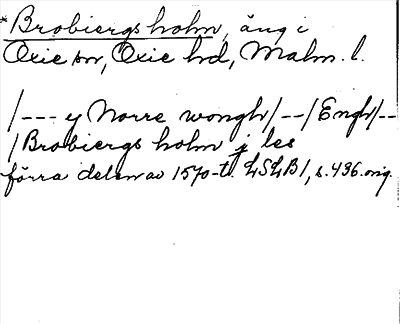 *Brobiergs holm, äng i
Oxie sn, Oxie hd, Malm. l.
/--- y Norre wongh/--/Engh/--
/Brobiergs holm j les
förra delen av 1570-t. LSLB1, s. 496. orig.